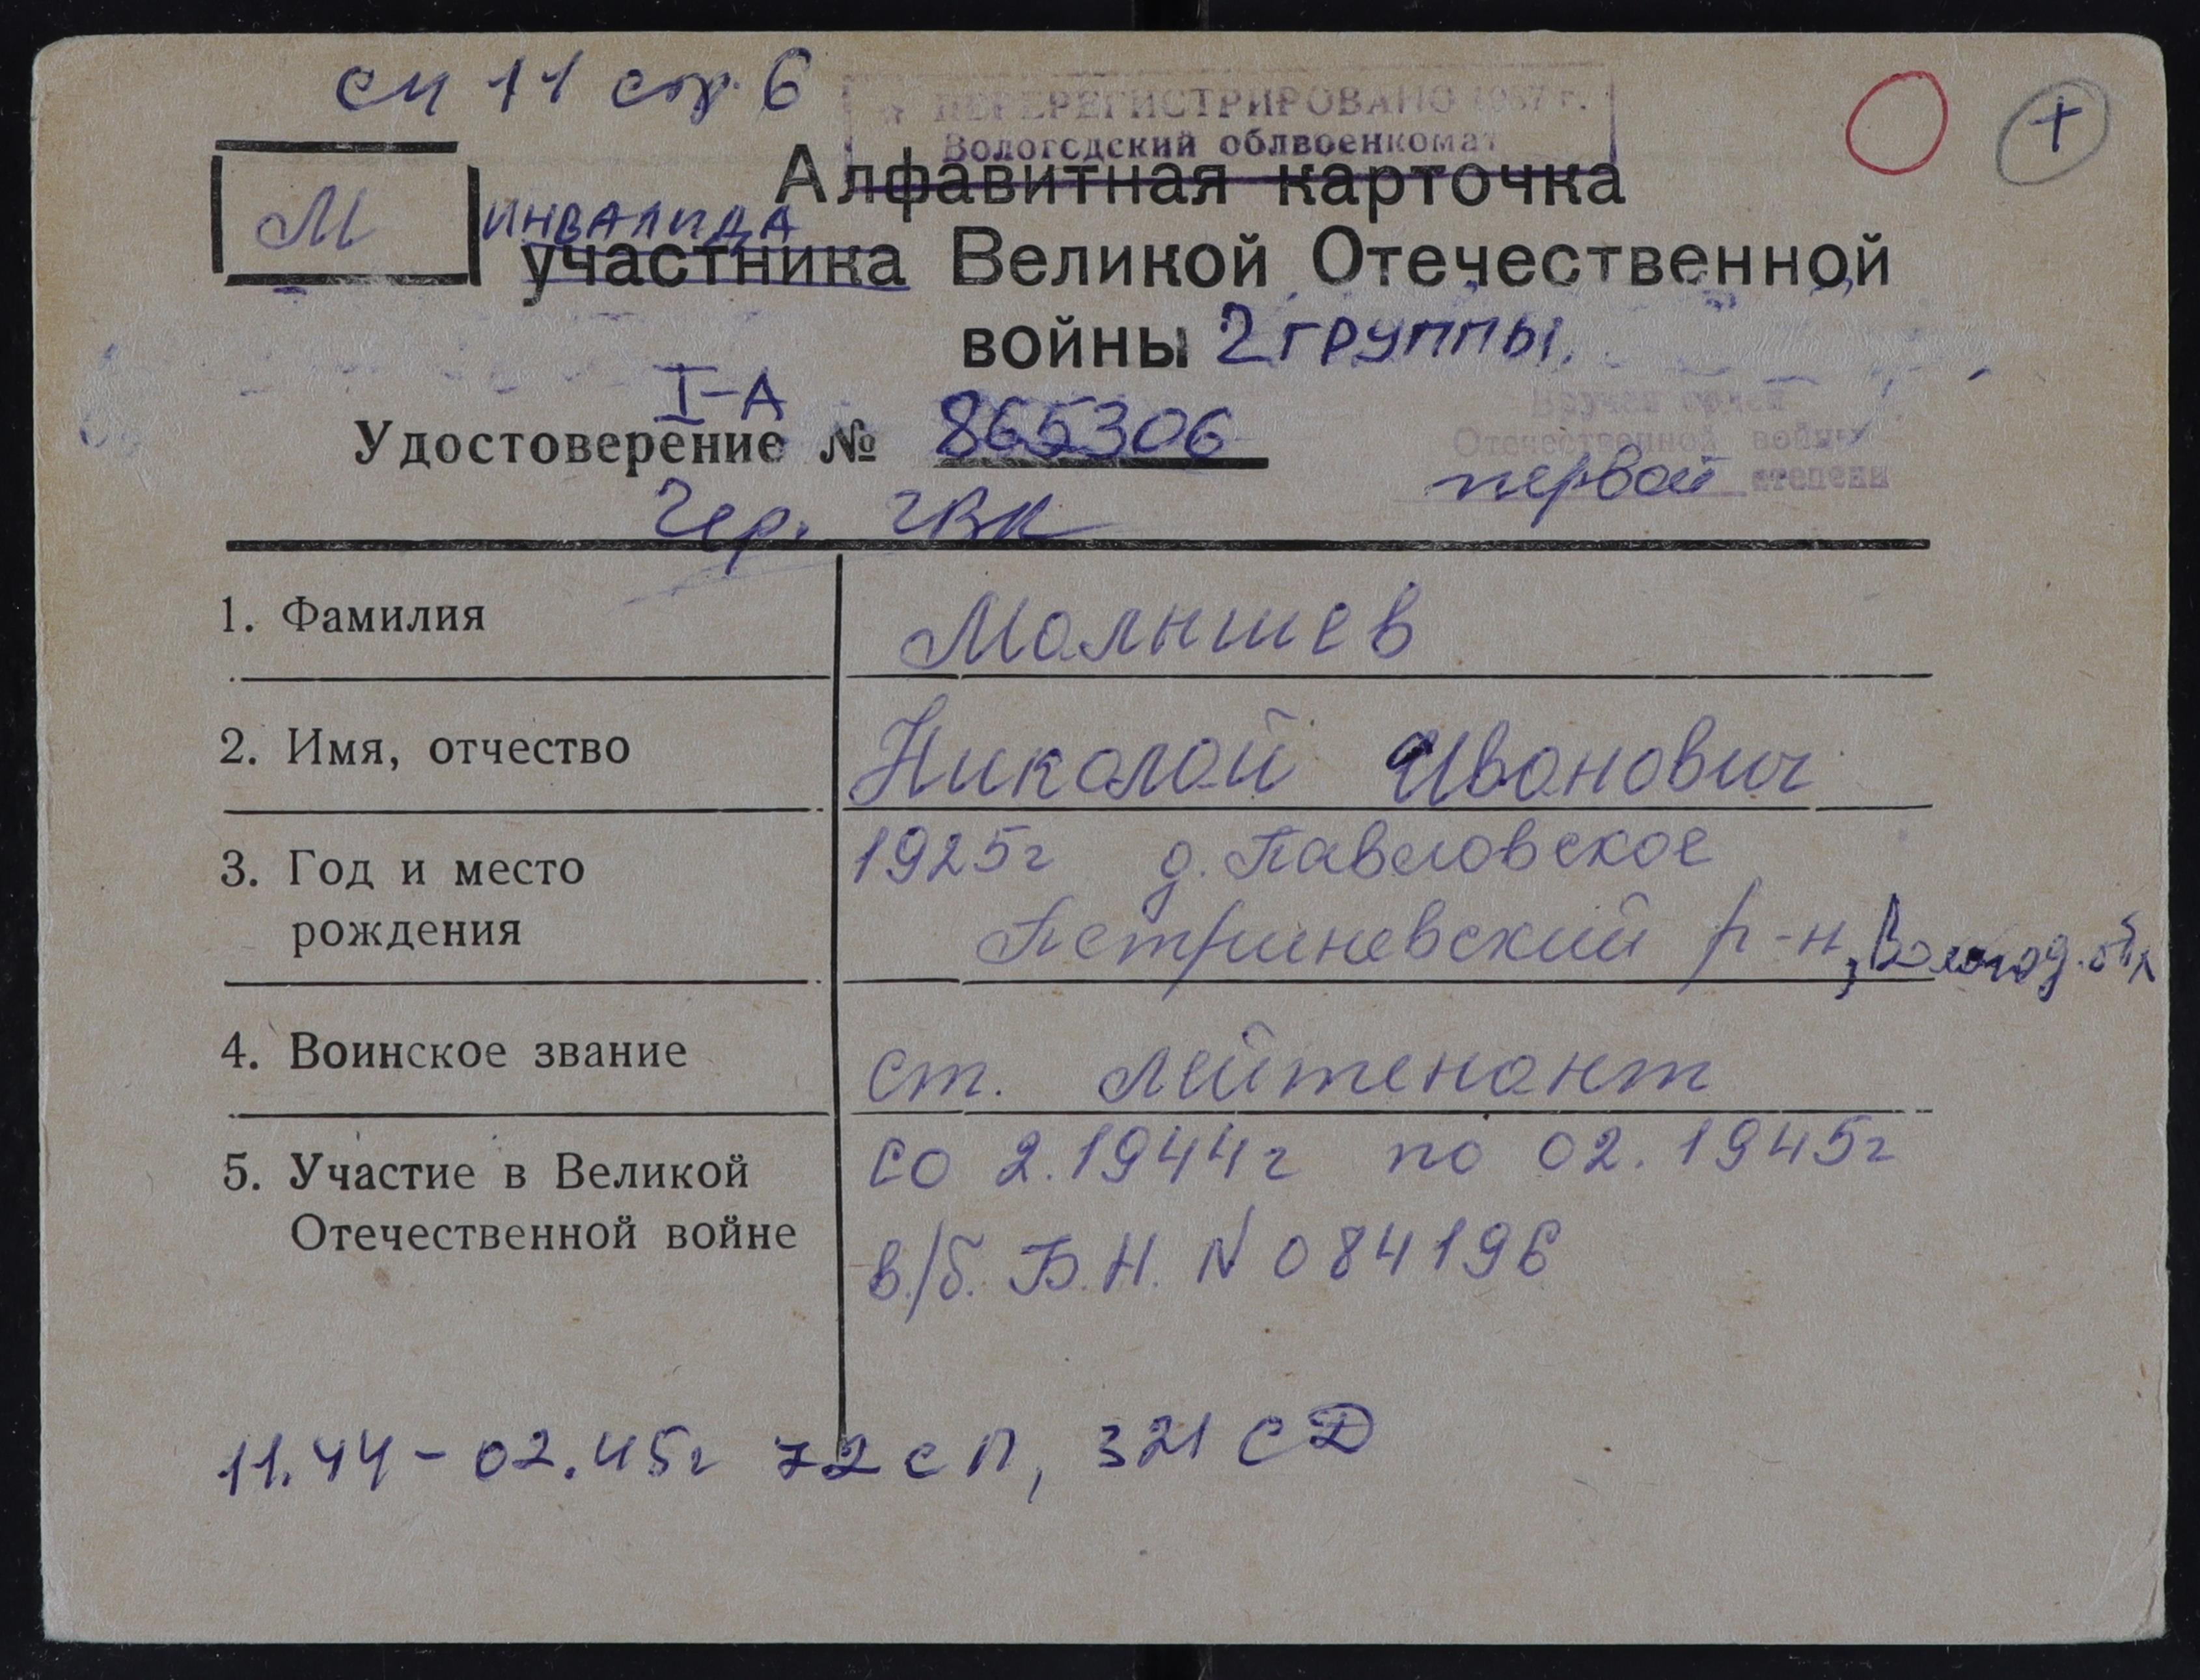 см 11 стр. 6
ПЕРЕРЕГИСТРИРОВАНО 1987 г.
Вологодский облвоенкомат
М
Алфавитная карточка
ИНВАЛИДА
участника Великой Отечественной
войны 2 группы.
I-А
Удостоверение № 865306
Вручен орден
Отечественной войны
первой степени
Чер. ГВК
1. Фамилия
Малышев
2. Имя, отчество
Николай Иванович
3. Год и место рождения
1925г д. Павловское
Петриневский р-н, Вологод. обл
4. Воинское звание
ст. лейтенант
5. Участие в Великой Отечественной войне
со 2.1944г по 02.1945г
в/б. Б.Н. N 084196
11.44-02.45г 72 сп, 321 СД
+